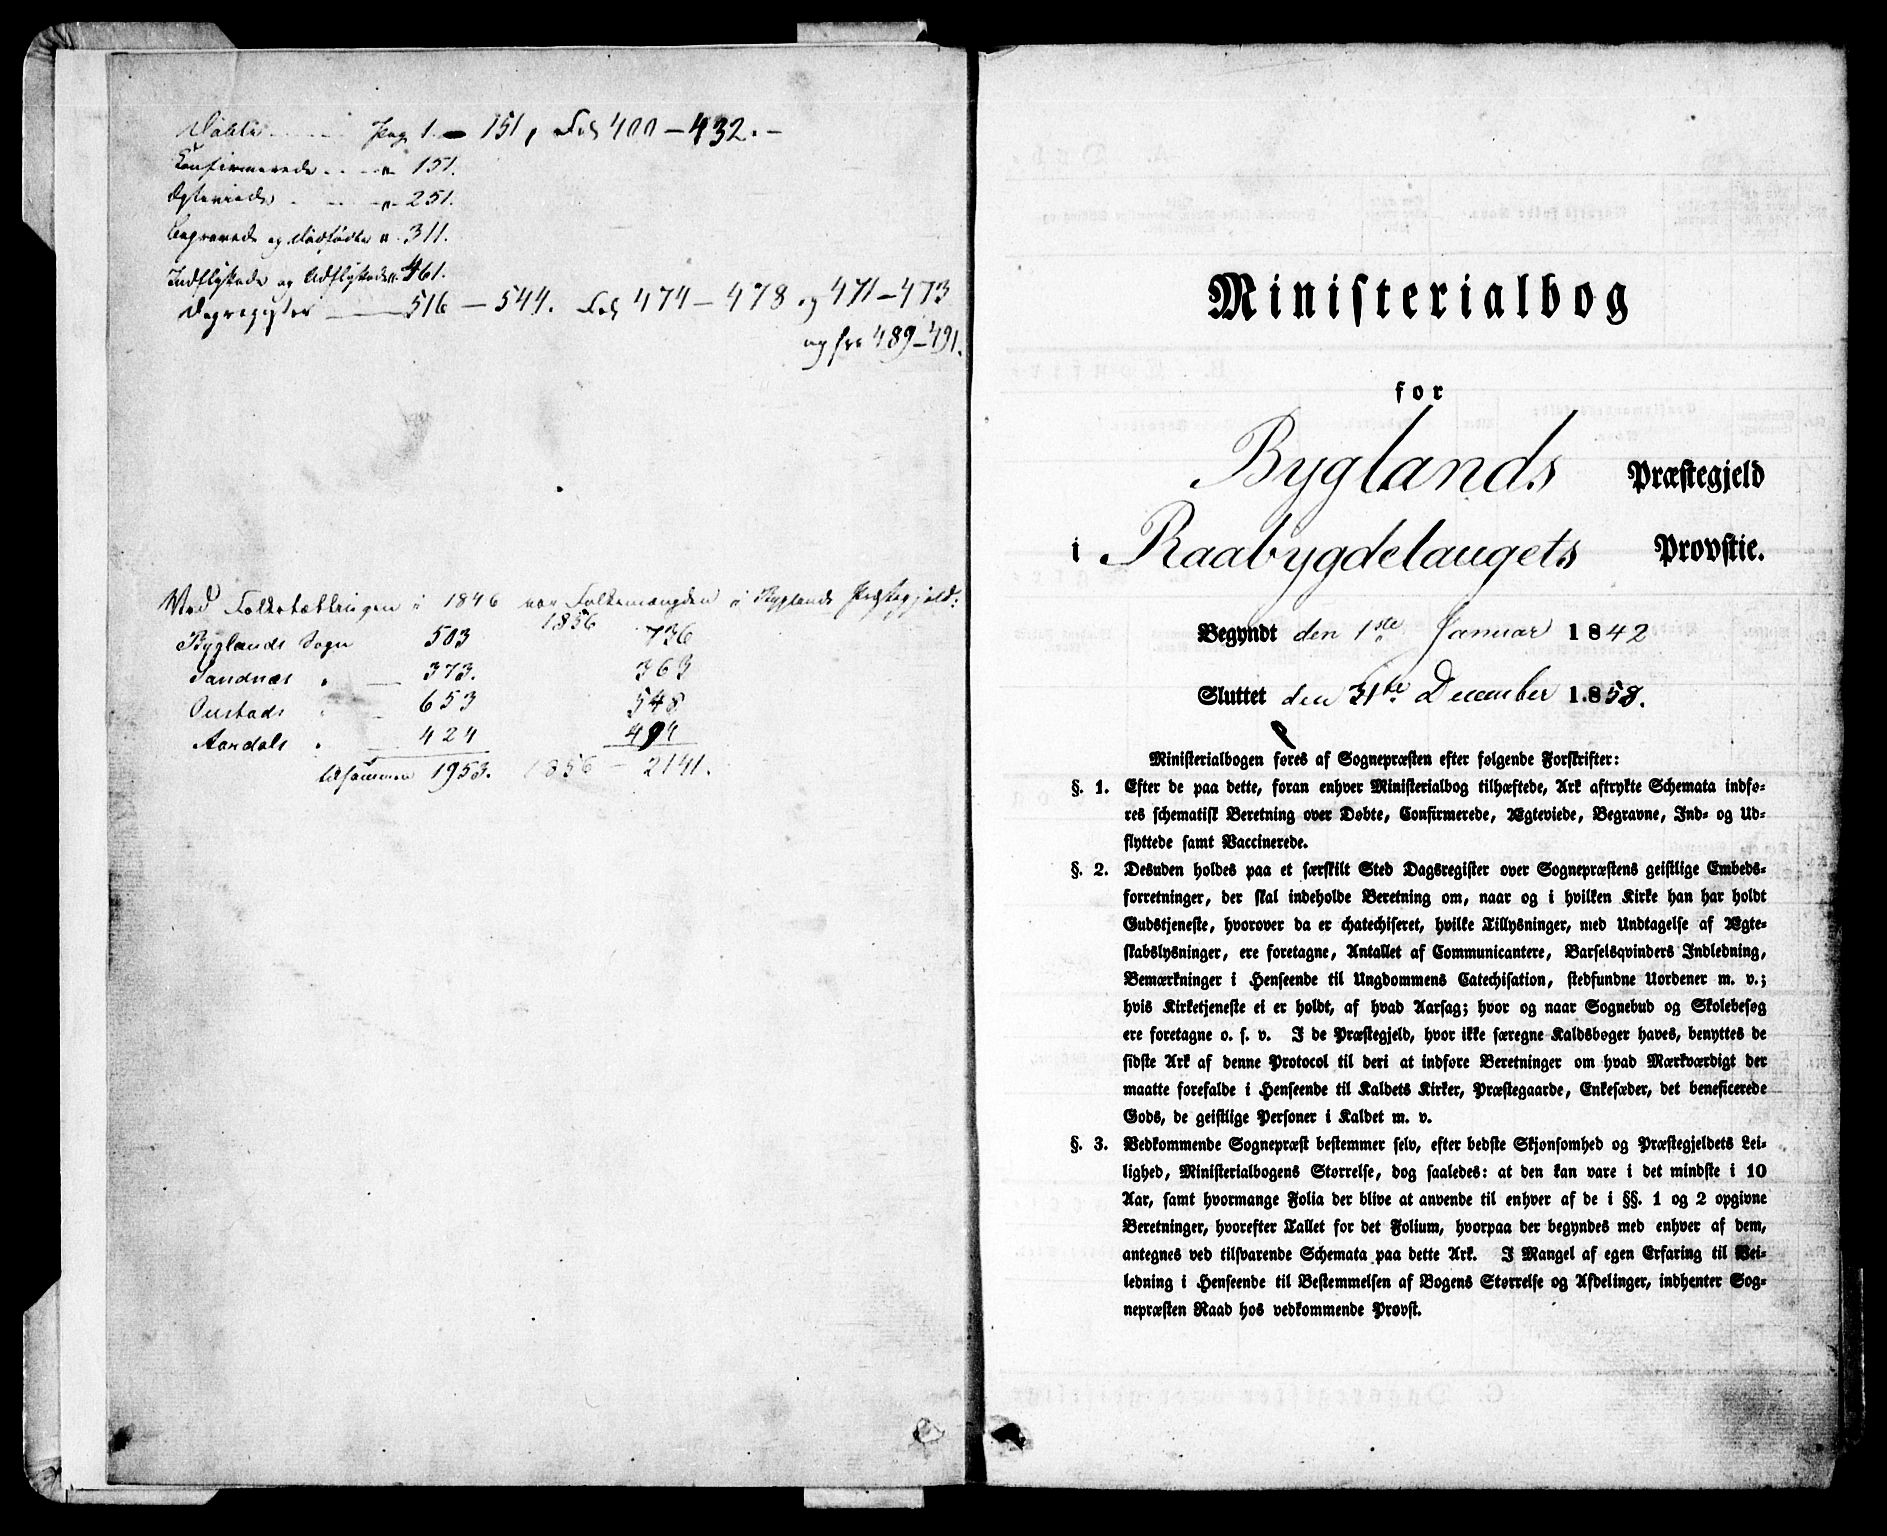 Døbte ........ Pag 1. — 151, Fol 400 — 432. —
Konfirmerede ..... " 151.
Ægteviede ..... " 251.
Begravede og Dødfødte " 311.
Indflyttede og Udflyttede " 461.
Dagregister —— 516 — 544. Fol 474 — 478 og 471 — 473
og fra 489 — 491.
Ved Folketællingen i 1846 var Folkemængden i Byglands Præstegjeld:
1856
Byglands Sogn 503 736
Sandnæs " — 373. 363
Oustads " — 653 548
Aardals " — 424 494
tilsammen 1953. 1856 — 2141.
Ministerialbog
for
Byglands Præstegjeld
i Raabygdelaugets Provstie.
Begyndt den 1ste Januar 1842
Sluttet den 31te December 1858.
Ministerialbogen føres af Sognepræsten efter følgende Forskrifter:
§. 1. Efter de paa dette, foran enhver Ministerialbog tilhæftede, Ark aftrykte Schemata indfø-
res schematisk Beretning over Døbte, Confirmerede, Ægteviede, Begravne, Ind- og Ud-
flyttede samt Vaccinerede.
§. 2. Desuden holdes paa et særskilt Sted Dagsregister over Sognepræstens geistlige Embeds-
forretninger, der skal indeholde Beretning om, naar og i hvilken Kirke han har holdt
Gudstjeneste, hvorover da er chatechiseret, hvilke Tillysninger, med Undtagelse af Ægte-
skabslysninger, ere foretagne, Antallet af Communicantere, Barselsqvinders Indledning,
Bemærkninger i Henseende til Ungdommens Catechisation, stedfundne Uordener m. v.;
hvis Kirketjeneste ei er holdt, af hvad Aarsag; hvor og naar Sognebud og Skolebesøg
ere foretagne o. s. v. I de Præstegjeld, hvor ikke særegne Kaldsbøger haves, benyttes de
sidste Ark af denne Protocol til deri at indføre Beretninger om hvad Mærkværdigt der
maatte forefalde i Henseende til Kaldets Kirker, Præstegaarde, Enkesæder, det beneficerede
Gods, de geistlige Personer i Kaldet m. v.
§. 3. Vedkommende Sognepræst bestemmer selv, efter bedste Skjønsomhed og Præstegjeldets Lei-
lighed, Ministerialbogens Størrelse, dog saaledes: at den kan vare i det mindste i 10
Aar, samt hvormange Folia der blive at anvende til enhver af de i §§. 1 og 2 opgivne
Beretninger, hvorefter Tallet for det Folium, hvorpaa der begyndes med enhver af dem,
antegnes ved tilsvarende Schemata paa dette Ark. I Mangel af egen Erfaring til Vei-
ledning i Henseende til Bestemmelsen af Bogens Størrelse og Afdelinger, indhenter Sog-
nepræsten Raad hos vedkommende Provst.